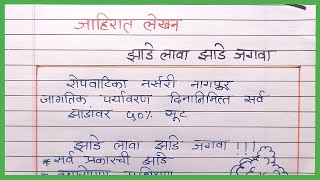 जाहिरात लेखन
झाडे लावा झाडे जगवा
रोपवाटिका नर्सरी नागपूर
जागतिक पर्यावरण दिनानिमित्त सर्व
झाडांवर ५०% सूट
झाडे लावा झाडे जगवा !!!
* सर्व प्रकारची झाडे